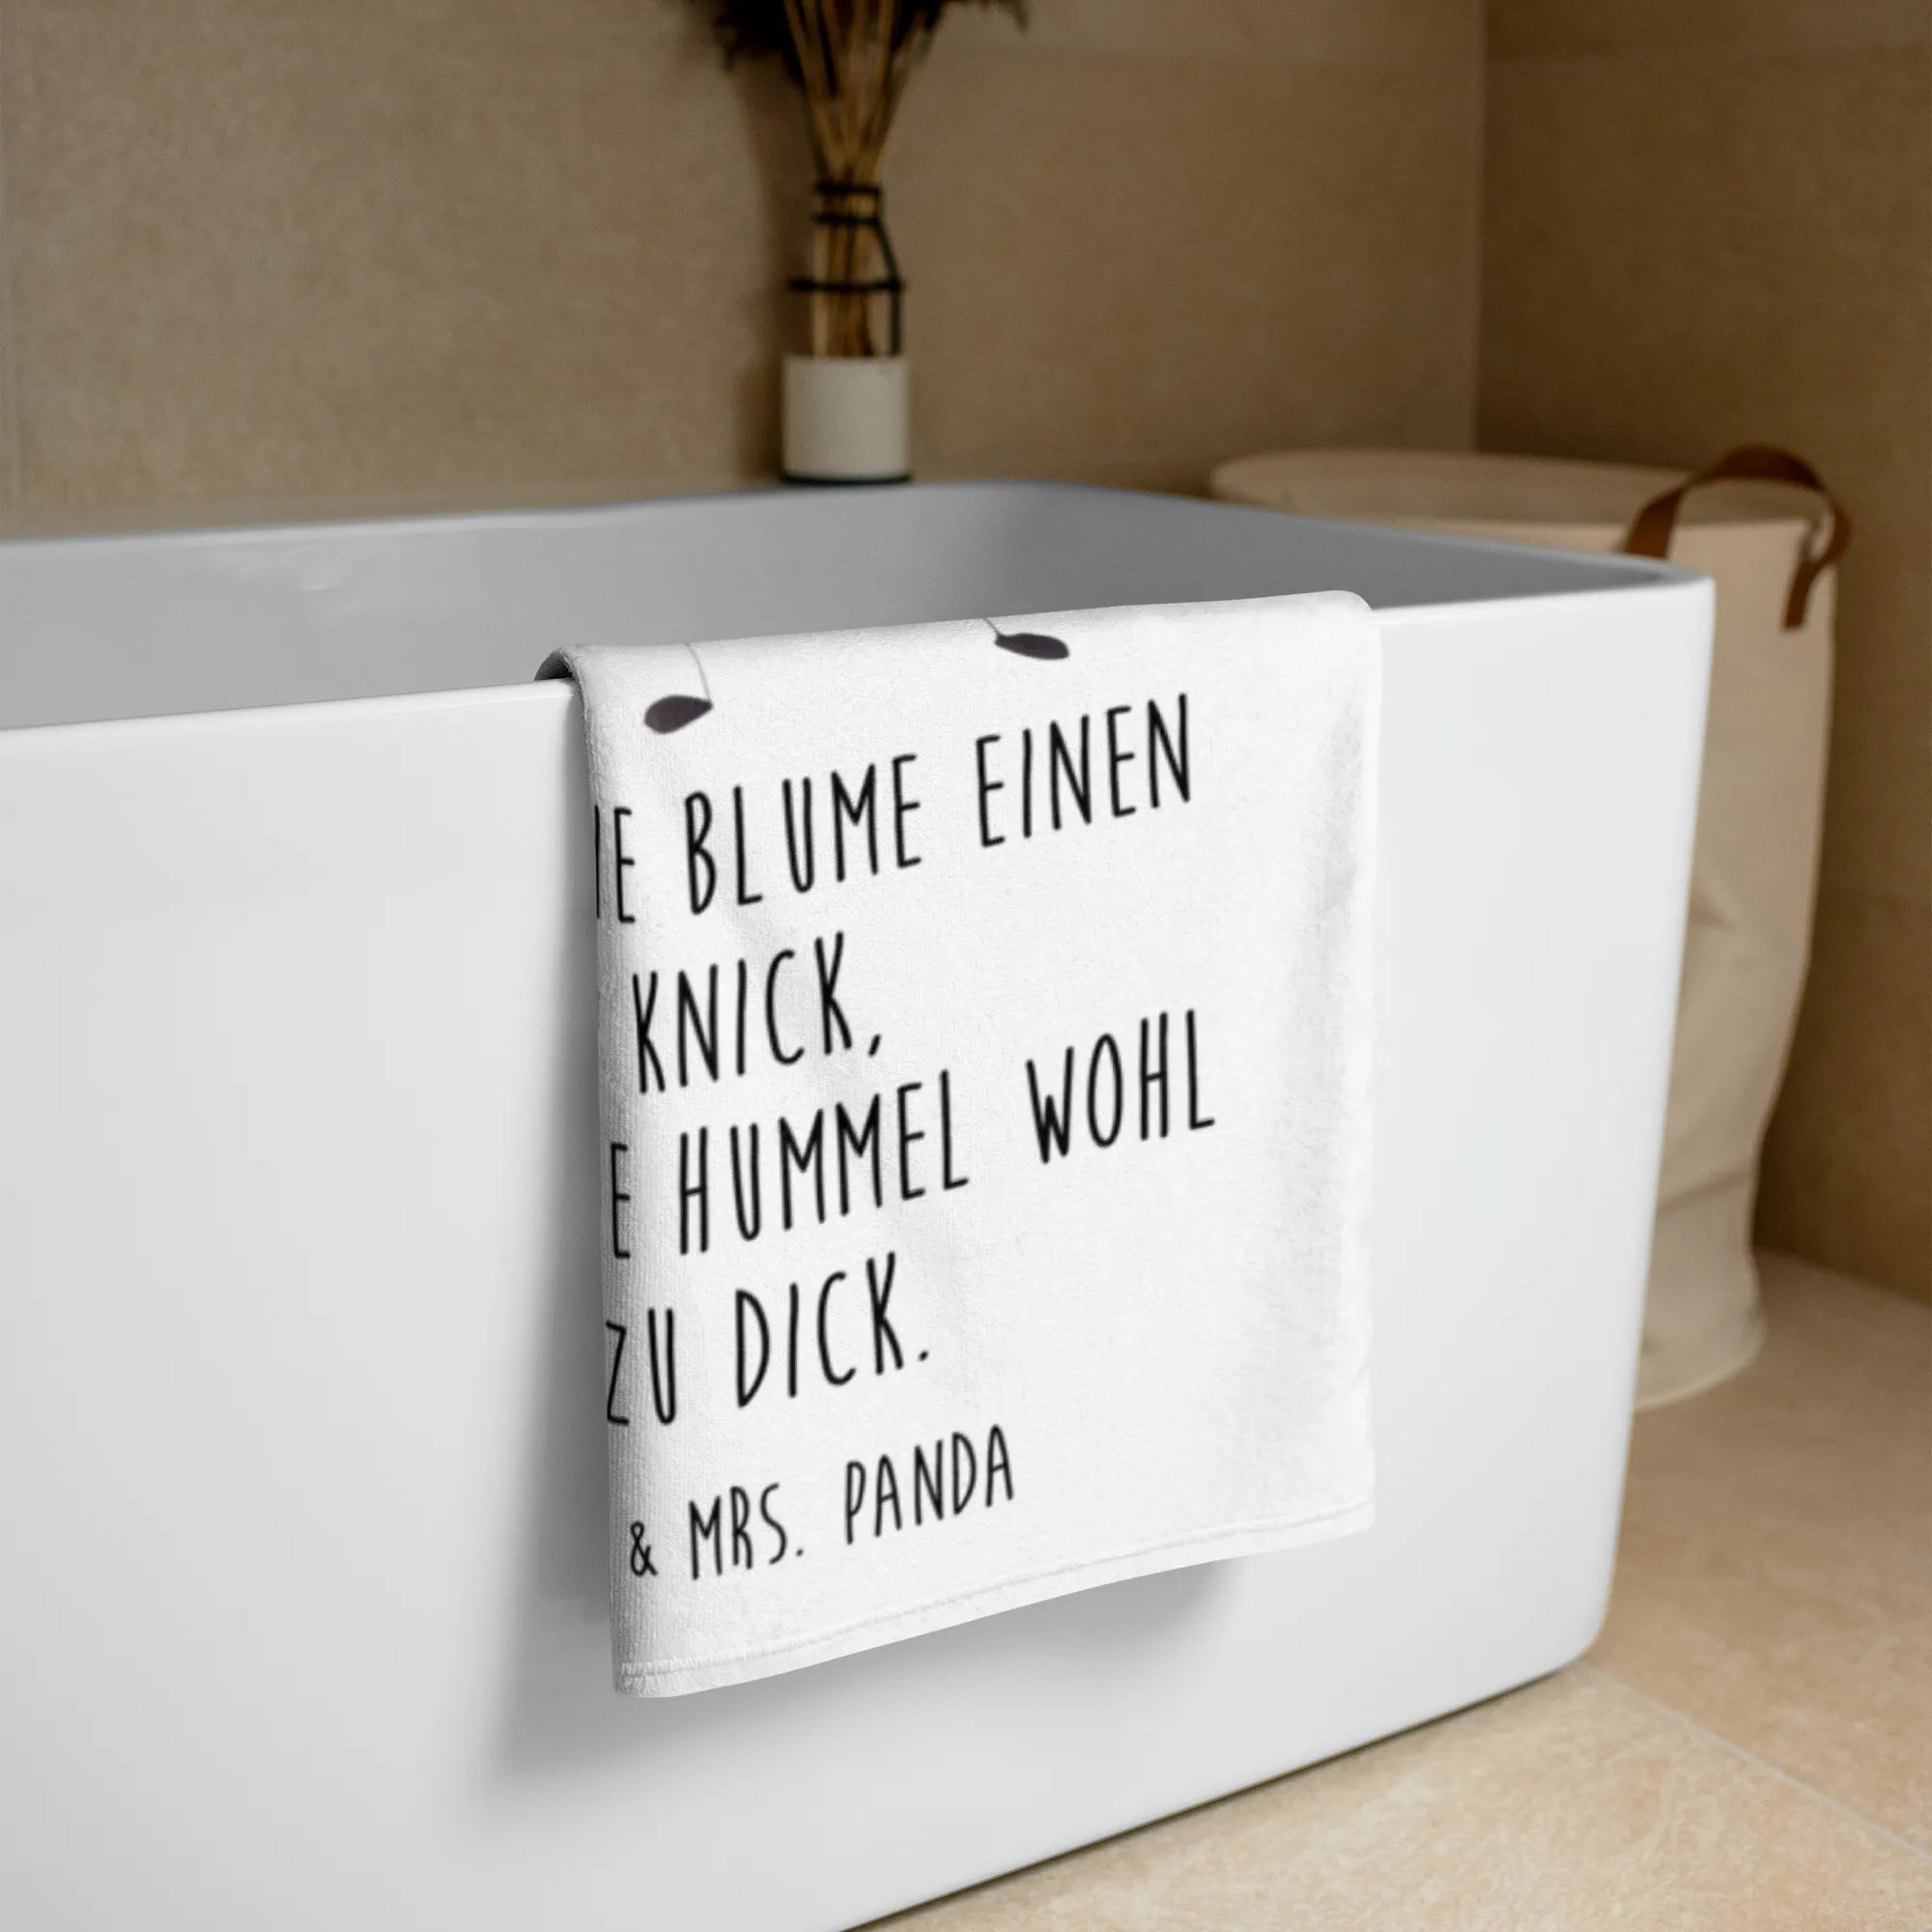 IE BLUME EINEN
KNICK,
E HUMMEL WOHL
ZU DICK.
& MRS. PANDA